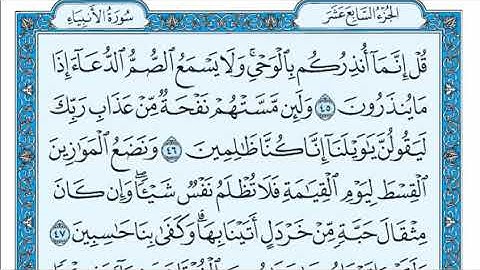 سُورَةُ الأَنبِيَاءِ الجُزْءُ السَّابِعُ عَشَرَ
قُلْ إِنَّمَآ أُنذِرُكُم بِٱلْوَحْىِ ۚ وَلَا يَسْمَعُ ٱلصُّمُّ ٱلدُّعَآءَ إِذَا
مَا يُنذَرُونَ ٤٥ وَلَئِن مَّسَّتْهُمْ نَفْحَةٌ مِّنْ عَذَابِ رَبِّكَ
لَيَقُولُنَّ يَـٰوَيْلَنَآ إِنَّا كُنَّا ظَـٰلِمِينَ ٤٦ وَنَضَعُ ٱلْمَوَٰزِينَ
ٱلْقِسْطَ لِيَوْمِ ٱلْقِيَـٰمَةِ فَلَا تُظْلَمُ نَفْسٌ شَيْـًٔا ۖ وَإِن كَانَ
مِثْقَالَ حَبَّةٍ مِّنْ خَرْدَلٍ أَتَيْنَا بِهَا ۗ وَكَفَىٰ بِنَا حَـٰسِبِينَ ٤٧